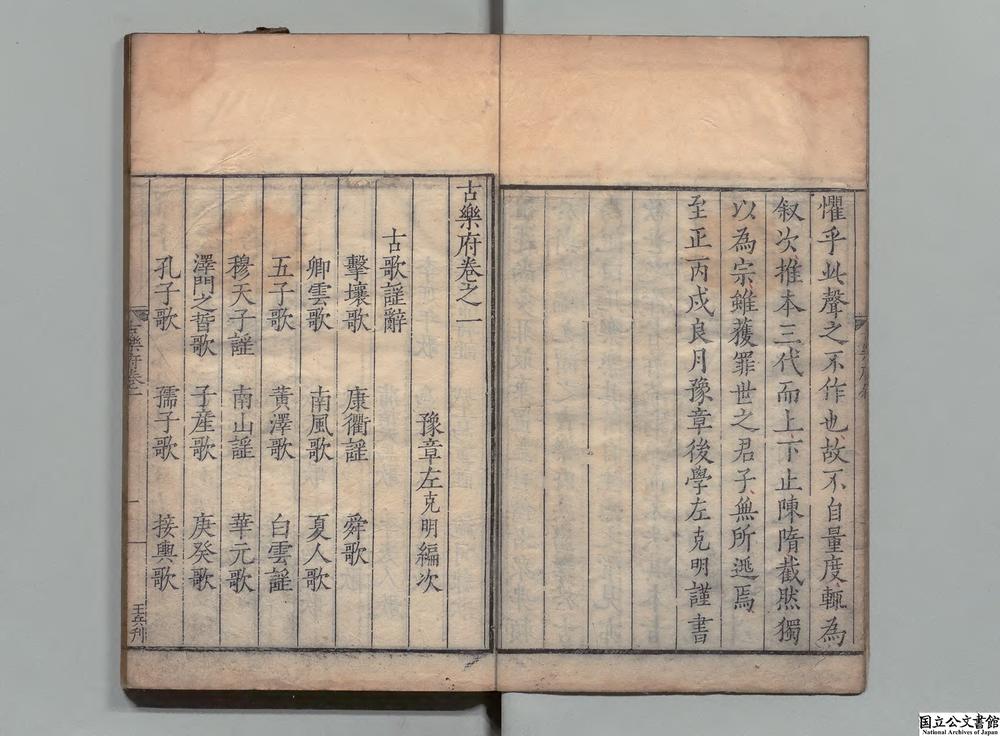 懼乎此聲之不作也故不自量度輒為
叙次推本三代而上下止陳隋截然獨
以為宗雖獲罪世之君子無所逃焉
至正丙戌良月豫章後學左克明謹書
古樂府卷之一
豫章左克明編次
古歌謡辭
擊壤歌 康衢謡 舜歌
卿雲歌 南風歌 夏人歌
五子歌 黃澤歌 白雲謡
穆天子謡 南山謡 華元歌
澤門之晳歌 子產歌 庚癸歌
孔子歌 孺子歌 接輿歌
国立公文書館
National Archives of Japan